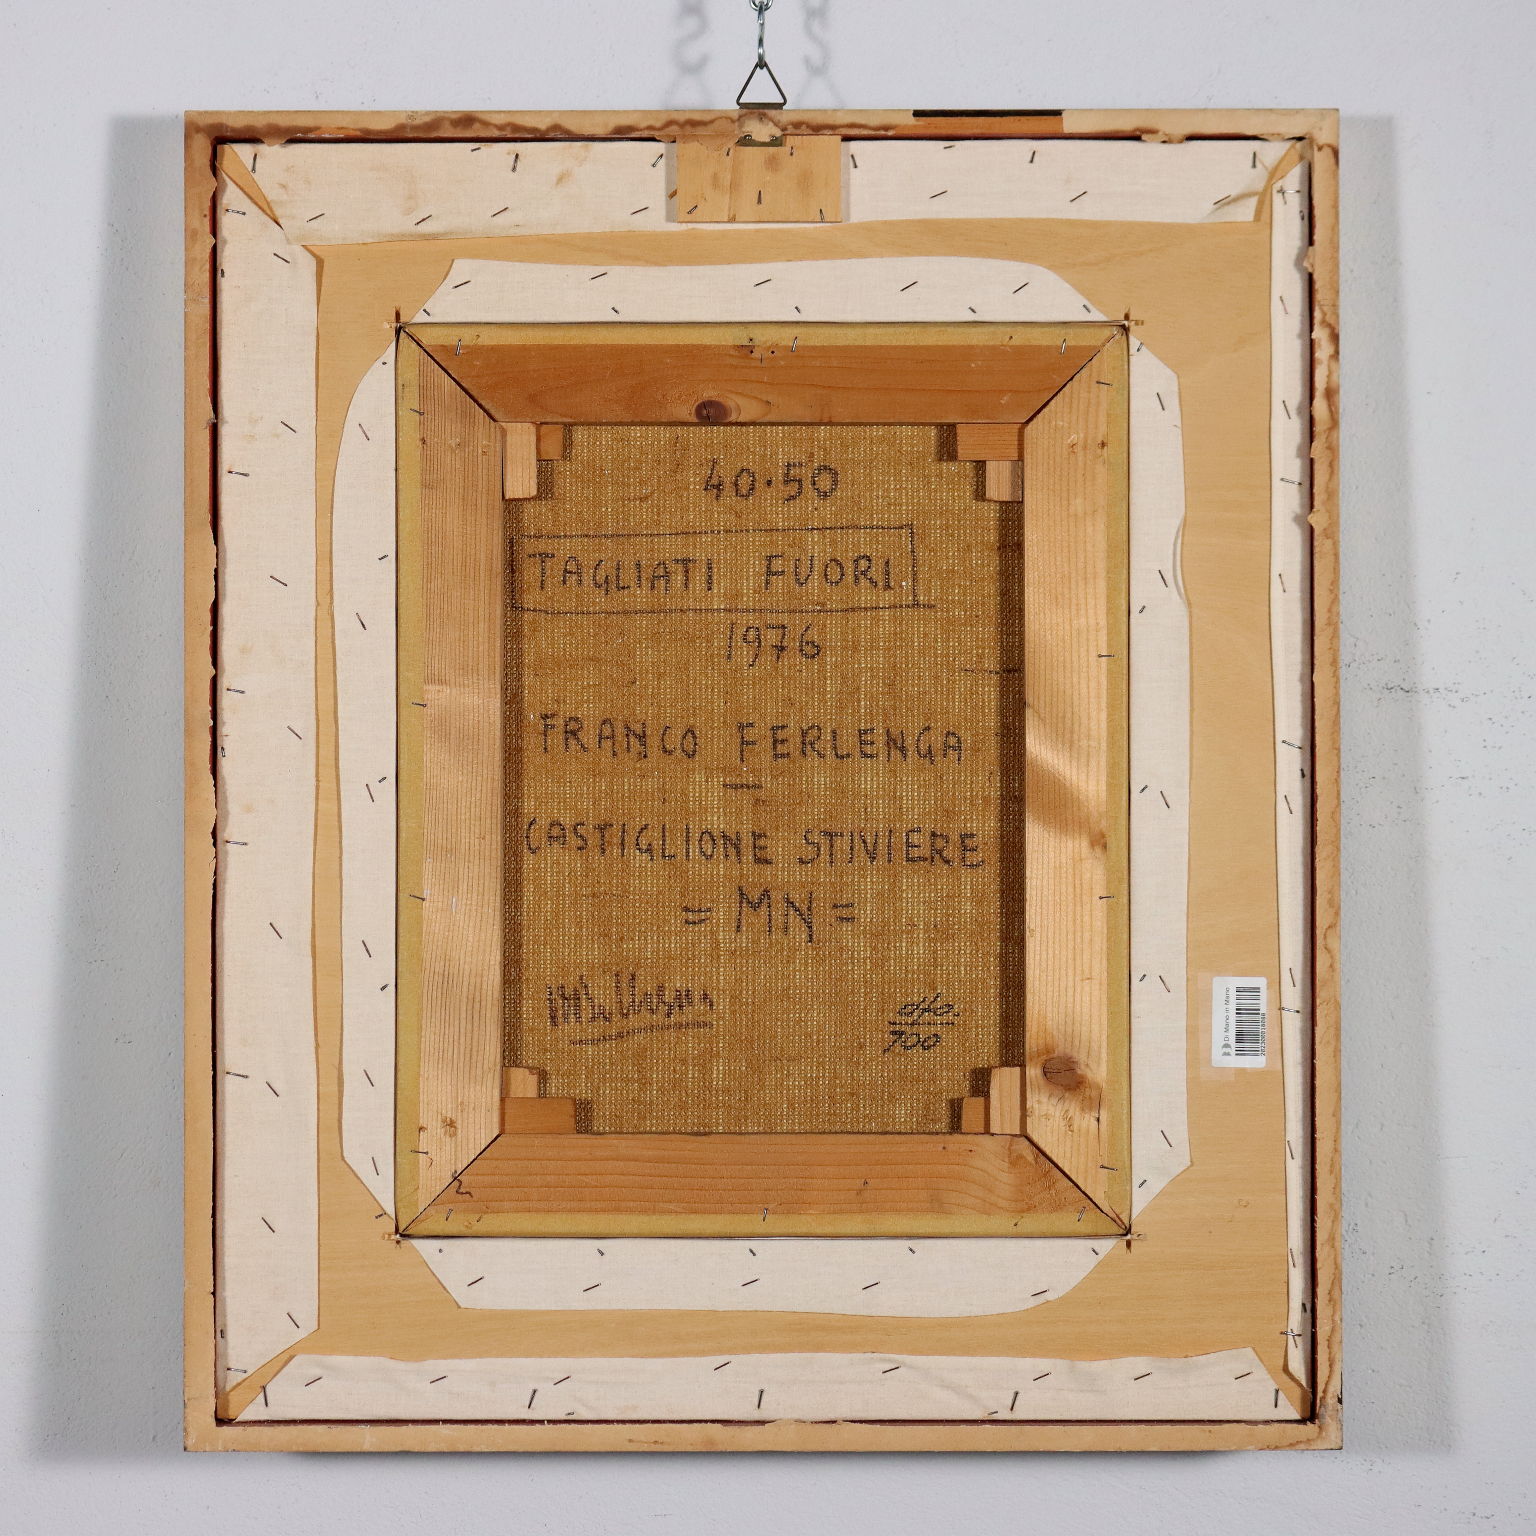 40·50
TAGLIATI FUORI
1976
FRANCO FERLENGA
CASTIGLIONE STIVIERE
= MN =
700
Di Mano in Mano